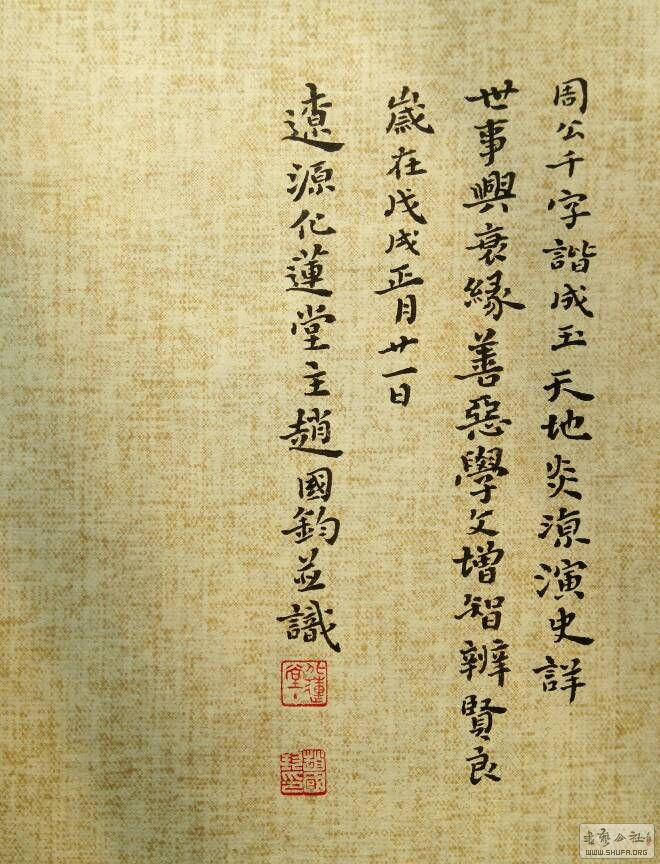 周公千字諧成玉天地炎源演史詳
世事興衰緣善惡學文增智辨賢良
歲在戊戌正月廿一日
遼源化蓮堂主趙國鈞並識
化蓮堂
趙國鈞印
書藝公社
WWW.SHUFA.ORG